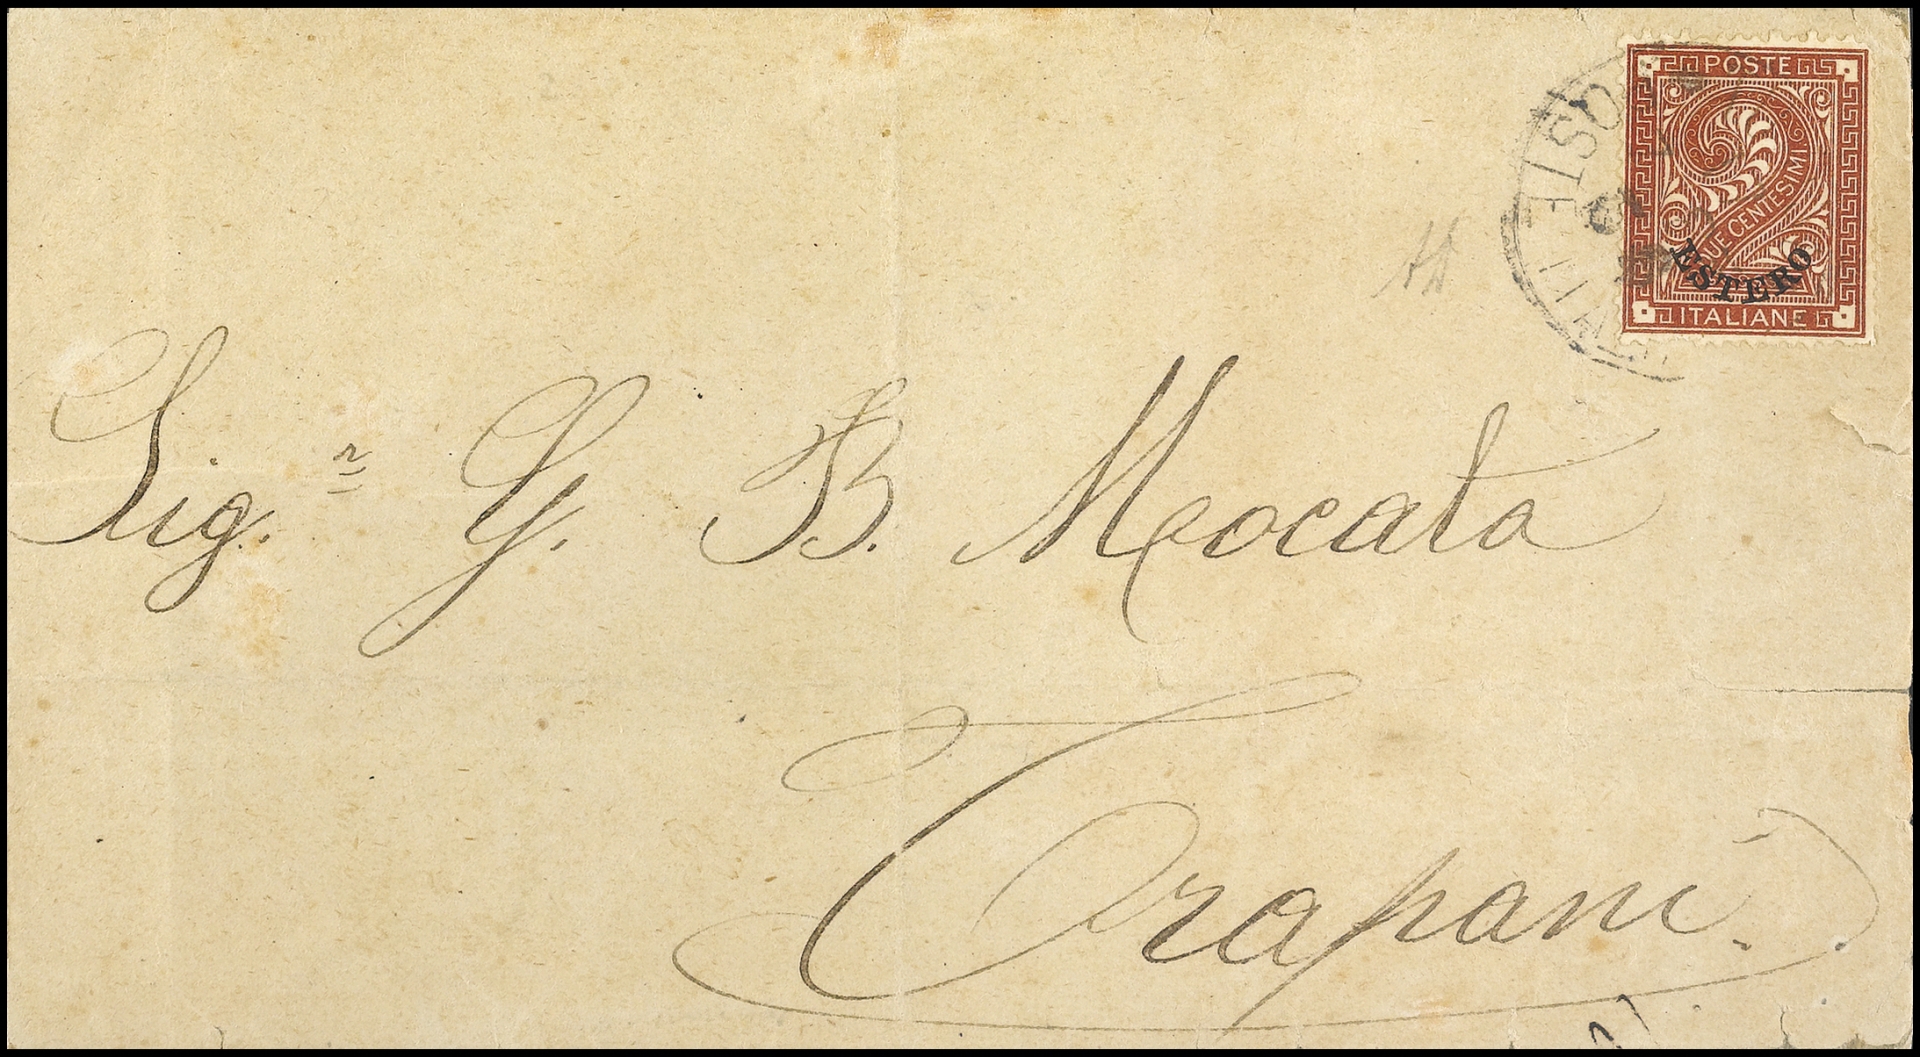 POSTE
DUE CENTESIMI
ESTERO
ITALIANE
POSTE
Sig.r G. B. Meocata
Trapani.